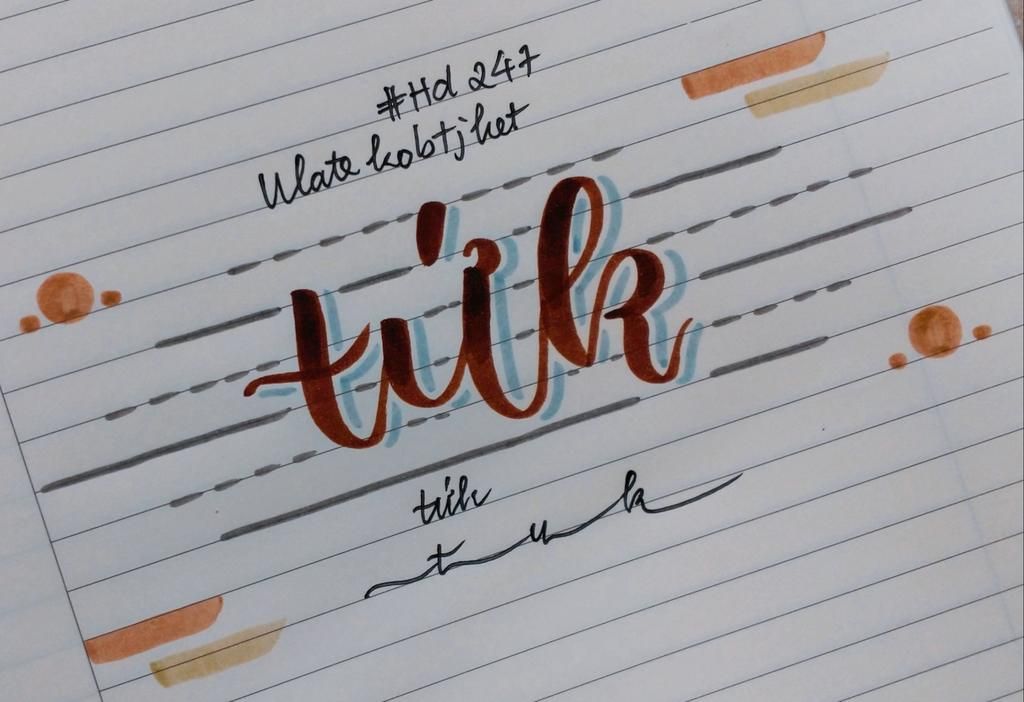 #Hd 247
Ulate kobtjhet
túk
túk
t u k